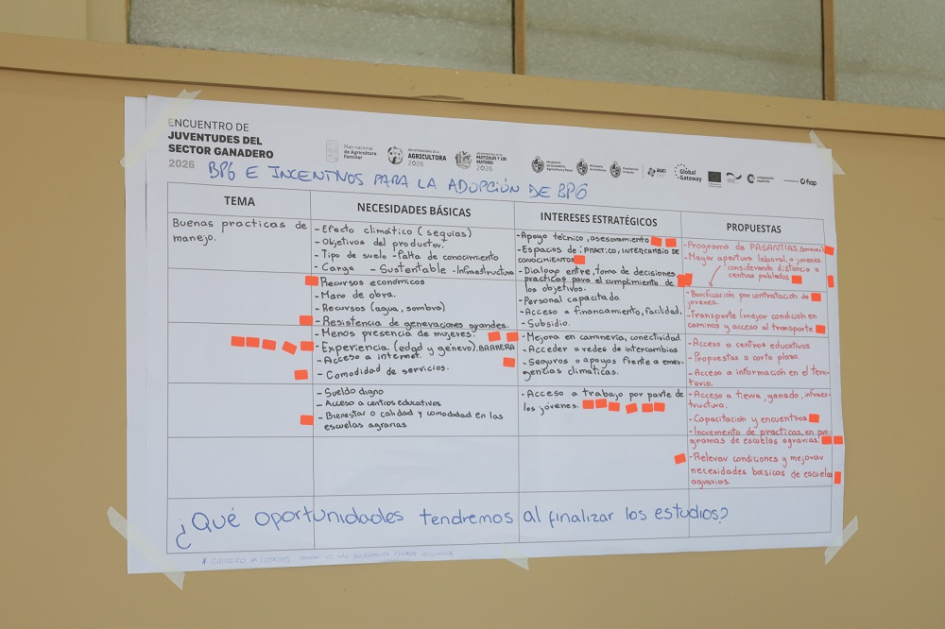 ENCUENTRO DE
JUVENTUDES DEL
SECTOR GANADERO
2026
Plan nacional
de Agricultura
Familiar
AGRICULTORA
2026
PASTIZALES Y LOS
PASTORES
2026
Global
Gateway
fiap
BPG E INCENTIVOS PARA LA ADOPCIÓN DE BPG
TEMA
NECESIDADES BÁSICAS
INTERESES ESTRATÉGICOS
PROPUESTAS
Buenas practicas de
manejo.
- Efecto climático (sequias)
- Objetivos del productor.
- Tipo de suelo - Falta de conocimiento
- Carga - Sustentable - Infraestructura
- Recursos económicos
- Mano de obra.
- Recursos (agua, sombra)
- Resistencia de generaciones grandes.
- Menos presencia de mujeres.
- Experiencia. (edad y género). BARRERA
- Acceso a internet.
- Comodidad de servicios.
- Sueldo digno
- Acceso a centros educativos
- Bienestar o calidad y comodidad en las
escuelas agrarias
- Apoyo técnico, asesoramiento
- Espacios de: PRACTICO, INTERCAMBIO DE
CONOCIMIENTOS
- Dialogo entre, toma de decisiones
practicas para el cumplimiento de
los objetivos.
- Personal capacitada
- Acceso a financiamiento, facilidad.
- Subsidio.
- Mejora en caminería, conectividad
- Acceder a redes de intercambios
- Seguros o apoyos frente a emer-
gencias climáticas.
- Acceso a trabajo por parte de
los jóvenes.
- Programa de PASANTÍAS
- Mayor apertura laboral a jovenes
considerando distancia a
centros poblados
- Bonificación por contratación de
jóvenes.
- Transporte (mejor condición en
caminos y acceso al transporte
- Acceso a centros educativos
- Propuestas a corto plazo
- Acceso a información en el terri-
torio.
- Acceso a tierra, ganado, infraes-
tructura.
- Capacitación y encuentros
- Incremento de practicas en pro
gramas de escuelas agrarias.
- Relevar condiciones y mejorar
necesidades basicas de escuelas
agrarias.
¿Qué oportunidades tendremos al finalizar los estudios?